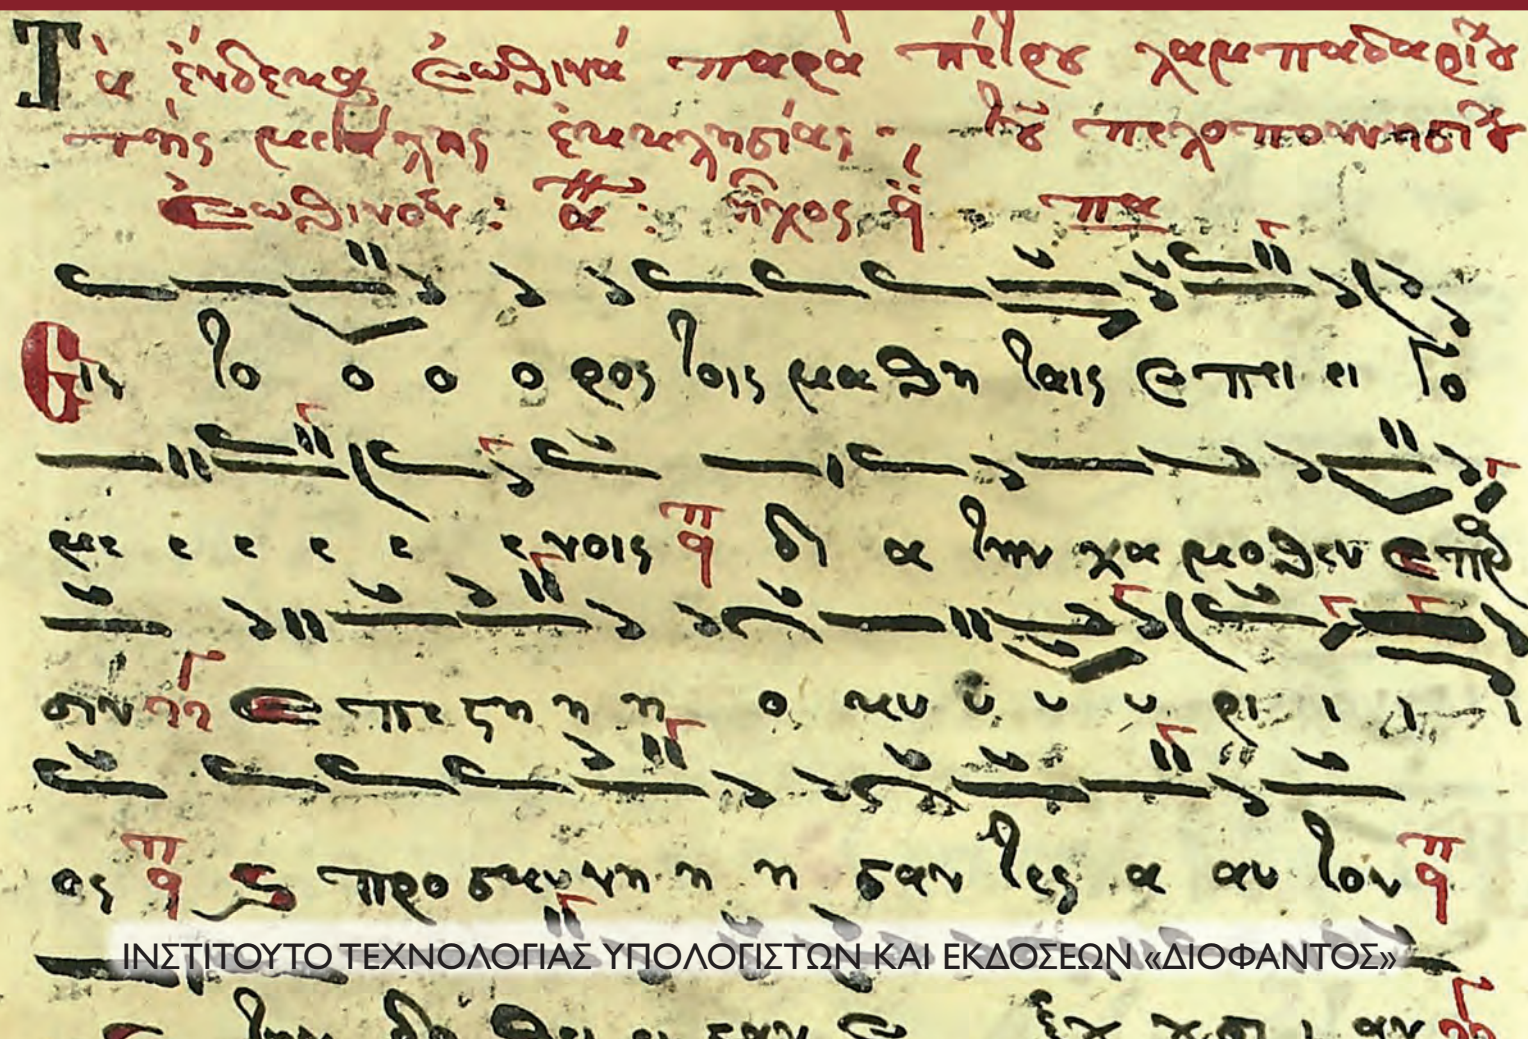 Τὰ ἕνδεκα ἑωθινά παρὰ πέτρου λαμπαδαρίου
τῆς μεγάλης ἐκκλησίας· τοῦ πελοποννησίου
Ἑωθινόν: α: ἦχος πα
Εις το ο ο ο ρος τοις μαθη ταις επει ει γο
με ε ε ε ε ενοις δι α την χαμοθεν επαρ
σιν επεστη η η ο κυ υ υ υ ρι ι ι ι
ος προσκυνη η η σαν τες α αυ τον
ΙΝΣΤΙΤΟΥΤΟ ΤΕΧΝΟΛΟΓΙΑΣ ΥΠΟΛΟΓΙΣΤΩΝ ΚΑΙ ΕΚΔΟΣΕΩΝ «ΔΙΟΦΑΝΤΟΣ»